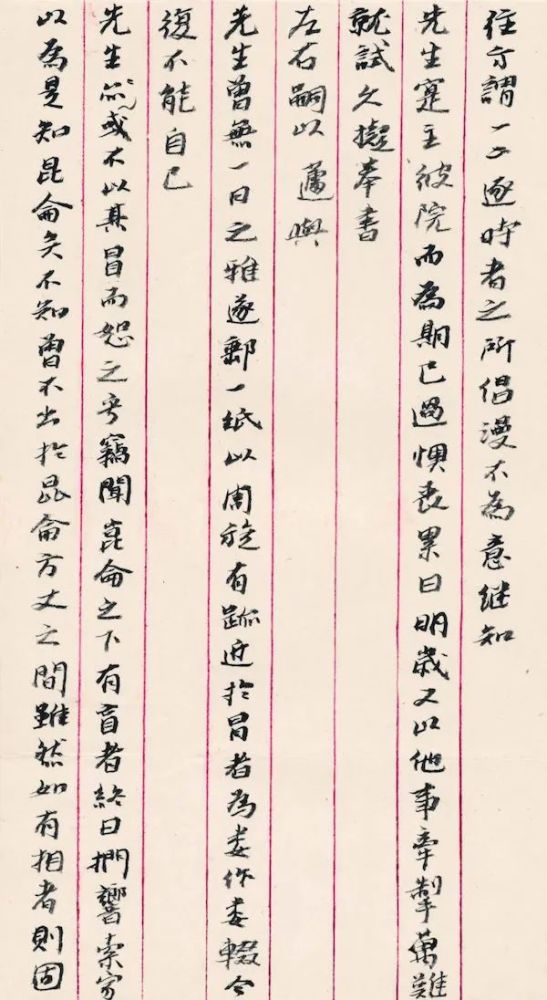 往亦謂一二逐時者之所倡漫不為意继知
先生寔主彼院而為期已過惧丧累日明歲又以他事牽掣萬難
就試久擬奉書
左右嗣以蘧與
先生曾無一日之雅遂郵一紙以周旋有跡近於冒者為娄作娄輟今
復不能自已
先生或不以其冒而恕之乎竊聞崑侖之下有盲者終日捫響索
以為是知昆侖矣不知曾不出於昆侖方丈之間雖然如有相者則固